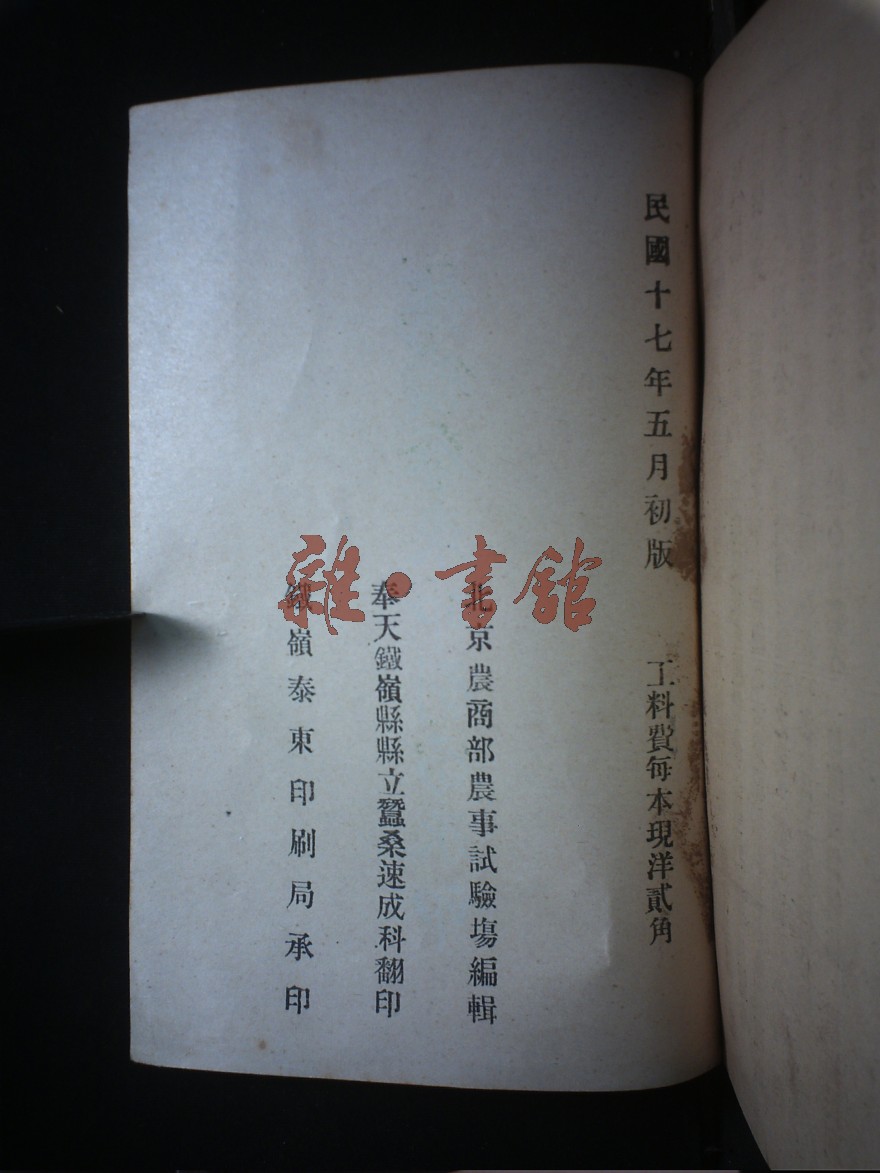 民國十七年五月初版　工料費每本現洋貳角
北京農商部農事試驗塲編輯
奉天鐵嶺縣縣立蠶桑速成科翻印
鐵嶺泰東印刷局承印
雜·書館